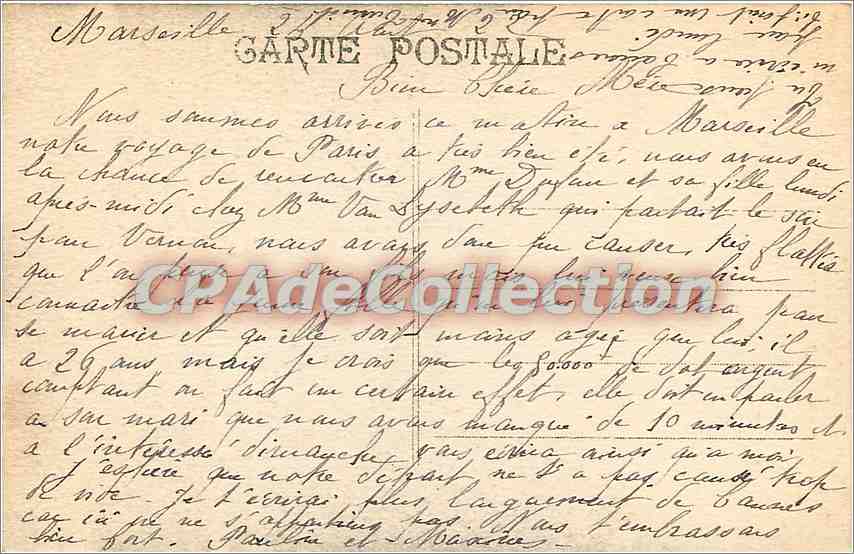 Marseille
CARTE POSTALE
Bien Chère Mère
Nous sommes arrives ce matin a Marseille
notre voyage de Paris a tres bien été, nous avons eu
la chance de rencontrer Mme Dufau et sa fille lundi
après-midi chez Mme Van Dysebeth qui partait le soir
pour Vernon, nous avons donc pu causer, très flattée
que l'on pense a son fils mais lui
CPAdeCollection
connaitre une jeune fille pour
se marier et qu'elle soit moins agée que lui, il
a 26 ans, mais je crois que les 80.000 de dot argent
comptant on fait un certain effet, elle doit en parler
a son mari que nous avons manqué de 10 minutes et
a l'intéressé dimanche, vous écrira ainsi qu'a moi
J'espère que notre départ ne t'a pas causé trop
de vide. Je t'écrirai plus longuement de Cannes
car ici je ne s'appartiens pas. Nous t'embrassons
bien fort. et Maxime
Tu peux
m'écrire a Cannes
pour lundi